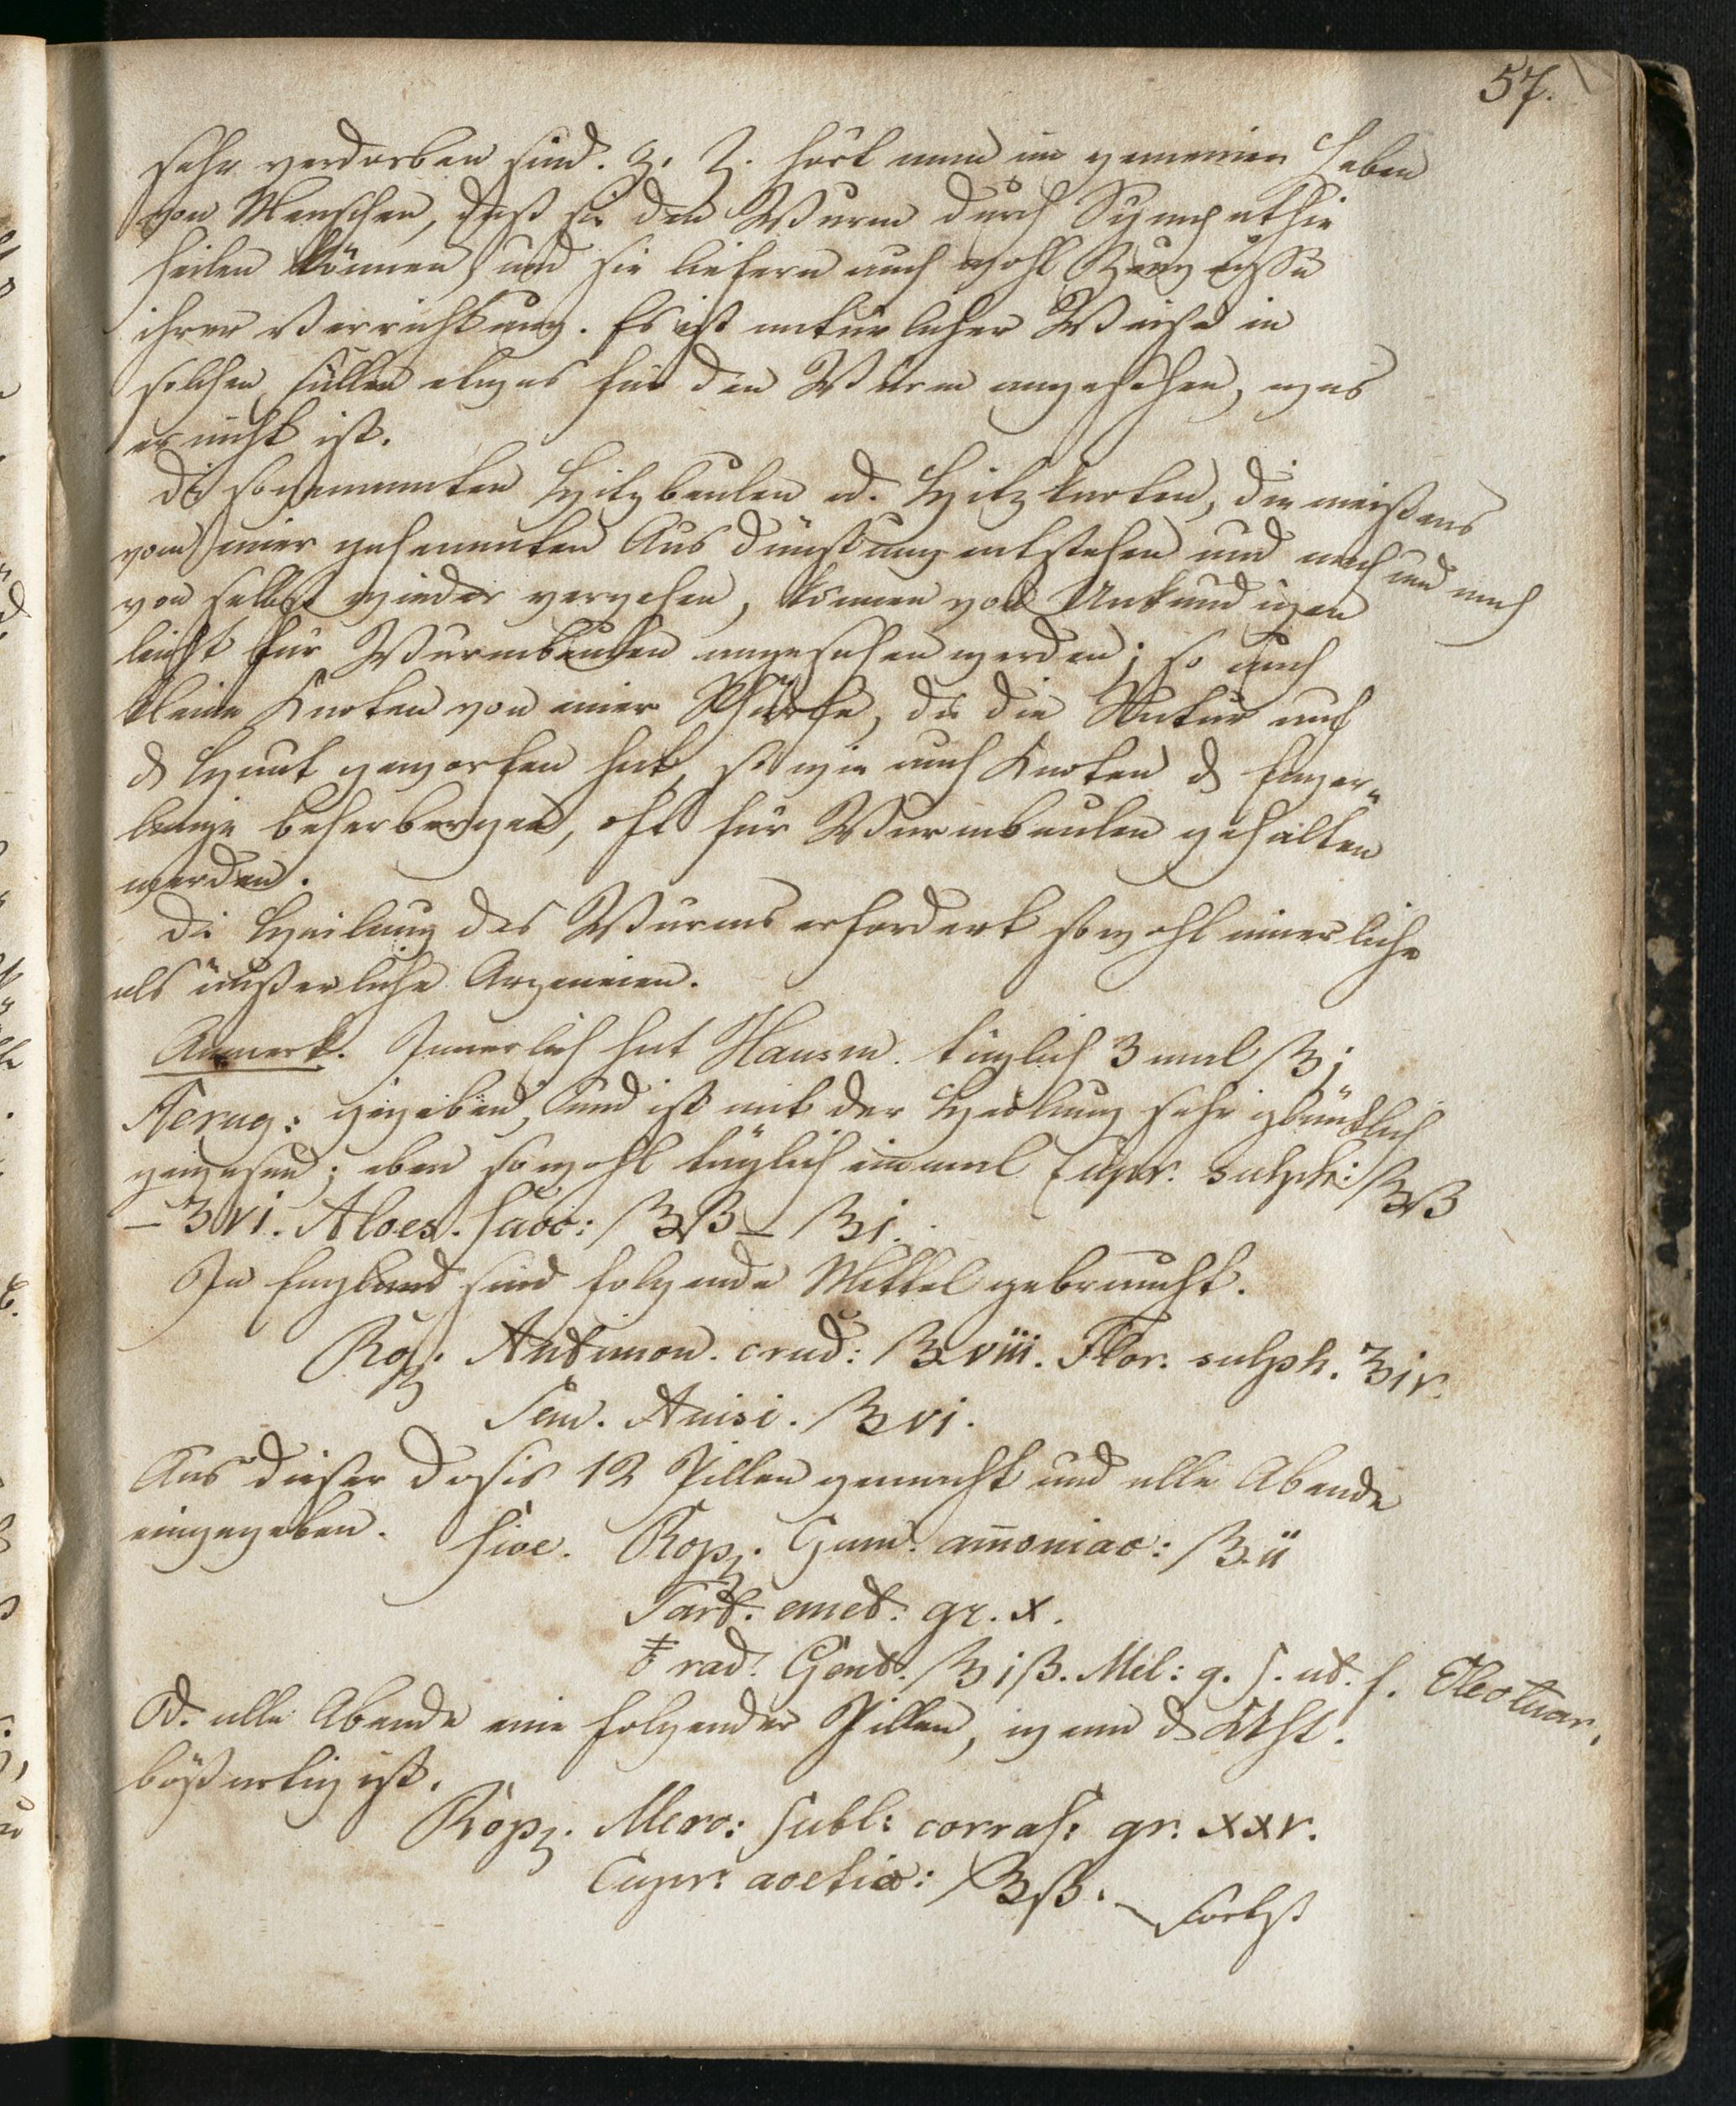 57.
sehr verdorben sind. Z. Z. hört man im gemeinen Leben
von Menschen, daß sie den Wurm durch Sympathie
heilen können, und sie liefern auch wohl Zeugnisse
ihrer Verrichtung. Es ist natürlicher Weise in
solchen Fällen etwas für den Wurm angesehen, was
er nicht ist.
Die sogenannten Hitzbeulen od. Hitzknoten, die meistens
von einer gehemmten Ausdünstung entstehen und nach und nach
von selbst wieder vergehen, können von Unkundigen
leicht für Wurmbeulen angesehen werden; so auch
kleine Knoten von einer Schärfe, die die Natur nach
d Haut geworfen hat, so wie auch Knoten d Enger„
linge beherbergen, oft für Wurmbeulen gehalten
werden.
Die Heilung des Wurms erfordert sowohl innerliche
als äußerliche Arzeneien.
Anmerk. Innerlich hat Hausm. täglich 3 mal ʒj
Aerug: gegeben, und ist mit der Heilung sehr glücklich
gewesen; eben sowohl täglich einmal Cupr. sulph: ʒß
– ʒvi. Aloes. succ: ʒß – ʒj.
In England sind folgende Mittel gebraucht.
Rcp. Antimon. crud: ʒviii. Flor. sulph. ʒiv.
Sem. Anisi. ʒvj.
Aus dieser Dosis 12 Pillen gemacht und alle Abende
eingegeben. Sive. Rcp. Gum. amoniac: ʒii
Tart. emet: gr. x.
rad. Gent. ʒiß. Mel: q. s. ut. f. Electuar.
Od. alle Abende eine folgender Pillen, wenn d
bößartig ist.
Rcp. Merc: subl: corros: gr. xxv.
Cupr: acetic: ʒß.